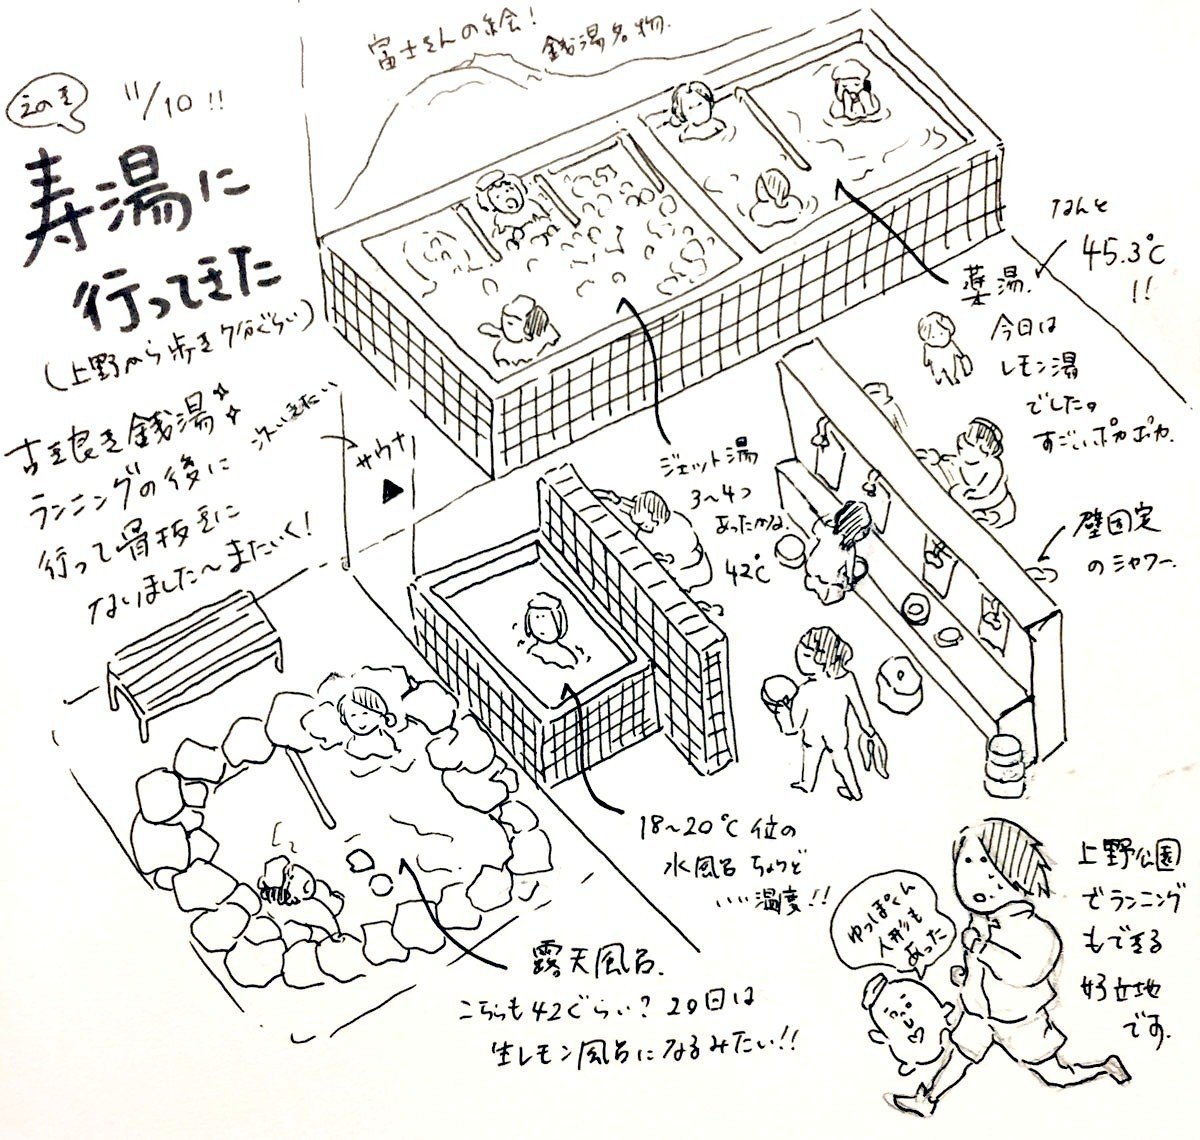 えのき
11/10!!
寿湯に
行ってきた
(上野から歩き7分ぐらい)
古き良き銭湯
ランニングの後に
行って骨抜きに
なりました〜またいく!
富士さんの絵!
銭湯名物.
サウナ
なんと
45.3℃
!!
薬湯.
今日は
レモン湯
でした。
すごいポカポカ.
ジェット湯
3〜4つ
あったかな.
42℃
壁固定
のシャワー.
18〜20℃位の
水風呂 ちょうど
いい温度!!
露天風呂.
こちらも42ぐらい? 29日は
生レモン風呂になるみたい!!
ゆっぽくん
人形も
あった
上野公園
でランニング
もできる
好立地
です.